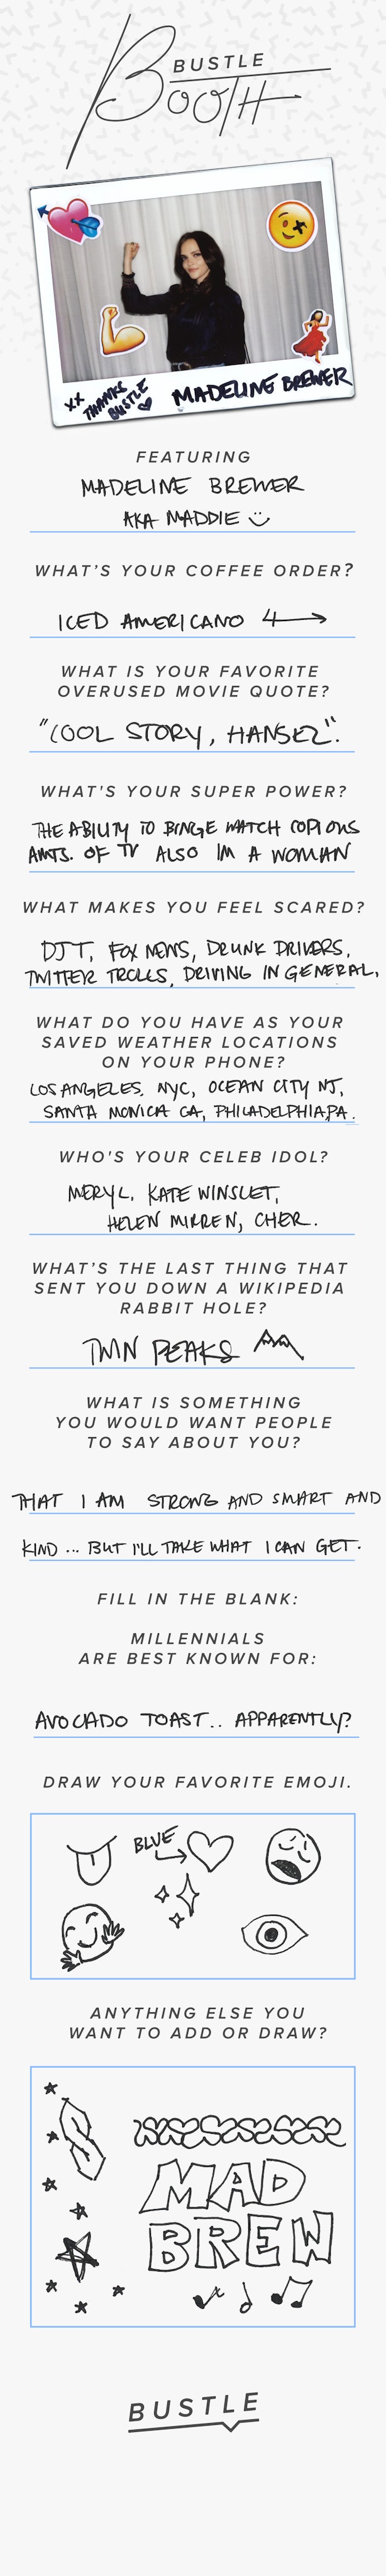 BUSTLE
BOOTH
XX
THANKS
BUSTLE
MADELINE BREWER
FEATURING
MADELINE BREWER
AKA MADDIE
WHAT'S YOUR COFFEE ORDER?
ICED AMERICANO
WHAT IS YOUR FAVORITE
OVERUSED MOVIE QUOTE?
"COOL STORY, HANSEL".
WHAT'S YOUR SUPER POWER?
THE ABILITY TO BINGE WATCH COPIOUS
AMTS. OF TV ALSO IM A WOMAN
WHAT MAKES YOU FEEL SCARED?
DJT, FOX NEWS, DRUNK DRIVERS,
TWITTER TROLLS, DRIVING IN GENERAL,
WHAT DO YOU HAVE AS YOUR
SAVED WEATHER LOCATIONS
ON YOUR PHONE?
LOS ANGELES, NYC, OCEAN CITY NJ,
SANTA MONICA CA, PHILADELPHIA, PA.
WHO'S YOUR CELEB IDOL?
MERYL, KATE WINSLET,
HELEN MIRREN, CHER.
WHAT'S THE LAST THING THAT
SENT YOU DOWN A WIKIPEDIA
RABBIT HOLE?
TWIN PEAKS
WHAT IS SOMETHING
YOU WOULD WANT PEOPLE
TO SAY ABOUT YOU?
THAT I AM STRONG AND SMART AND
KIND ... BUT I'LL TAKE WHAT I CAN GET.
FILL IN THE BLANK:
MILLENNIALS
ARE BEST KNOWN FOR:
AVOCADO TOAST.. APPARENTLY?
DRAW YOUR FAVORITE EMOJI.
BLUE
ANYTHING ELSE YOU
WANT TO ADD OR DRAW?
MAD
BREW
BUSTLE